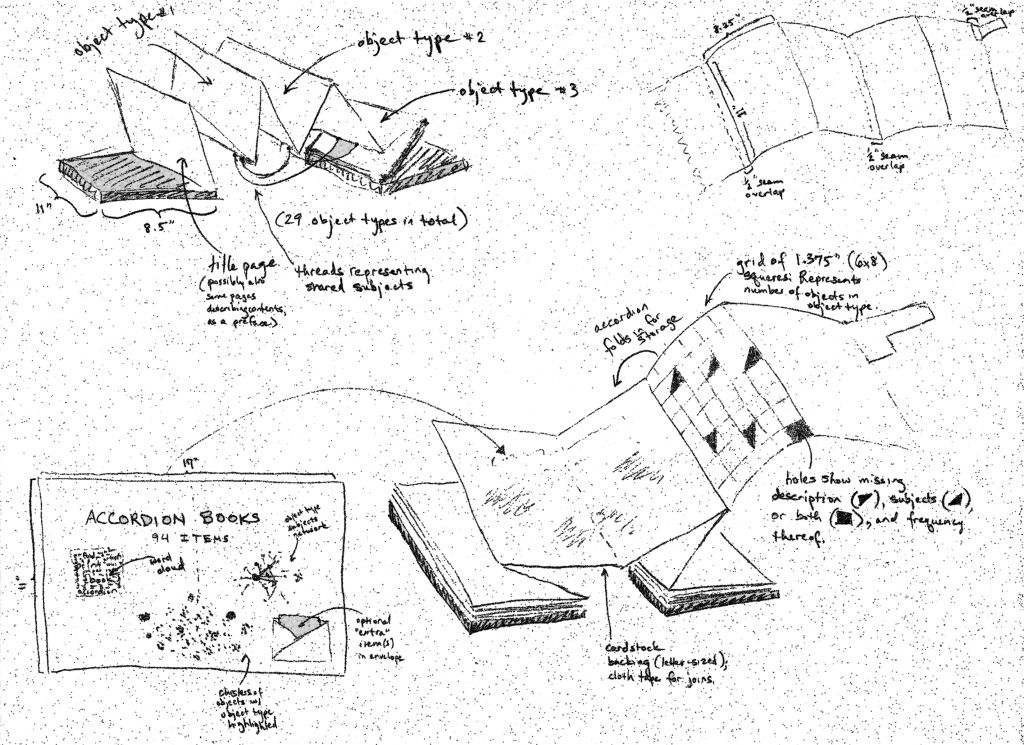 object type #1
object type #2
object type #3
11"
8.5"
(29 object types in total)
title page
(possibly also
some pages
describing contents,
as a preface)
threads representing
shared subjects
8.25"
11"
1/2" seam
overlap
1/2" seam
overlap
1/2" seam
overlap
grid of 1.375" (6x8)
squares: Represents
number of objects in
object type.
accordion
folds in for
storage
holes show missing
description (◤), subjects (◢),
or both (■), and frequency
thereof.
17"
11"
ACCORDION BOOKS
94 ITEMS
word
cloud
book
accordion
object type
subjects
network
optional
"extra"
item(s)
in envelope
clusters of
objects w/
object type
highlighted
cardstock
backing (letter-sized);
cloth tape for joins.